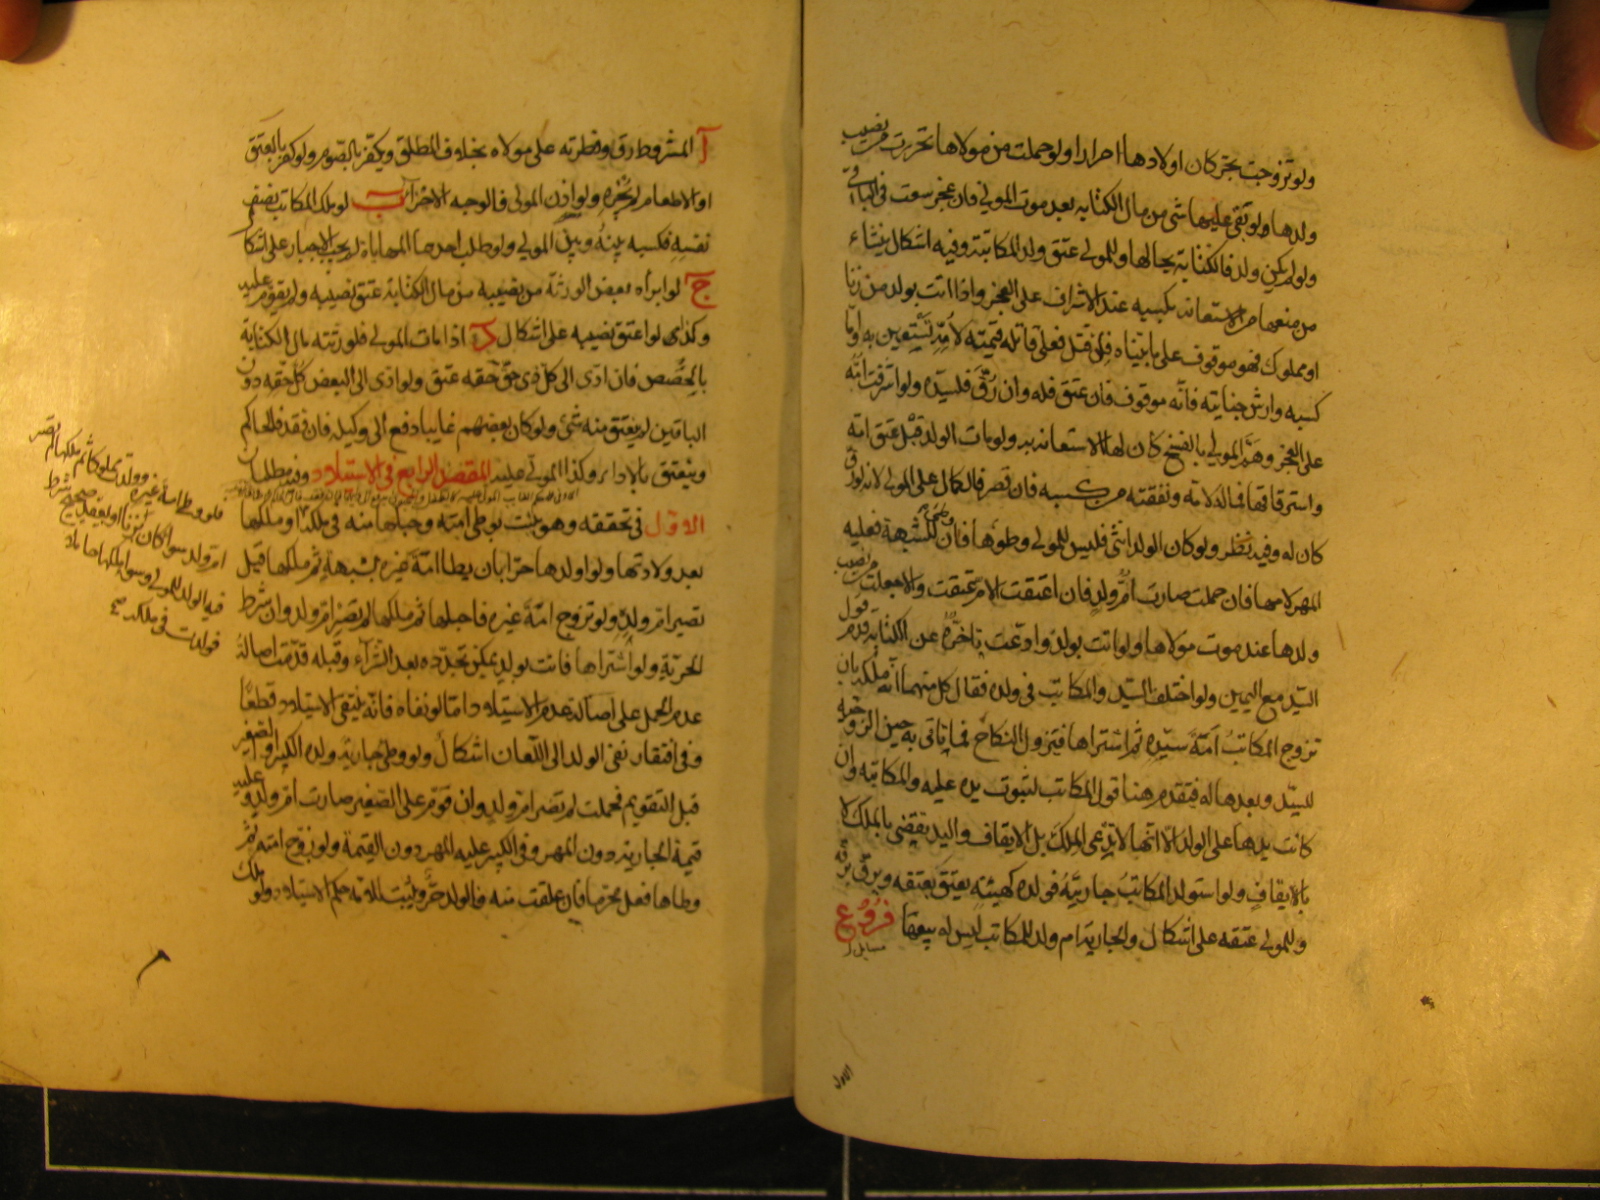 ولو تزوجت بحر كان اولادها احرارا ولو حملت من مولاها تحررت من نصيب
ولدها ولو بقى عليها شى من مال الكتابه بعد موت المولى فان عجز سعت فى الباقى
ولو لم يكن ولد فالكتابة بحالها وللمولى عتق ولد المكاتبة وفيه اشكال ينشاء
من منعها من الاستعانه بكسبه عند الاشراف على العجز واذا اتت بولد من زنا
او مملوك فهو موقوف على ما بيناه فان قتل فعلى قاتله قيمته لامه تستعين به واما
كسبه وارش جنايته فانه موقوف فان عتق فله وان رق فلسيده ولو اشرفت امه
على العجز وهم المولى بالفسخ كان لها الاستعانه به ولو مات الولد قبل عتق امه
واسترقاقها فماله لامه ونفقته من كسبه فان قصر فالكمال على المولى لانه لو رق
كان له وفيه نظر ولو كان الولد انثى فليس للمولى وطؤها فان وطئ للشبهة فعليه
المهر لامها فان حملت صارت ام ولد فان اعتقت الام عتقت والا جعلت من نصيب
ولدها عند موت مولاها ولو اتت بولد وادعت تاخره عن الكتابه قدم قول
السيد مع اليمين ولو اختلف السيد والمكاتب فى ولده فقال كل منهما انه ملكه بان
تزوج المكاتب امة سيده ثم اشتراها فيزول النكاح فما تاتى به حين الزوجية
للسيد وبعدها له فيتقدم هنا قول المكاتب لثبوت يده عليه والمكاتبه وان
كانت يدها على الولد الا انها لا تدعى الملك بل الايقاف واليد يقضى بالملك لا
بالايقاف ولو استولد المكاتب جاريته فولده كهيئته يعتق بعتقه ويرق برقه
وللمولى عتقه على اشكال والجارية ام ولد للمكاتب ليس له بيعها فروع
مسايل
الاول
آ المشروط رق وفطرته على مولاه بخلاف المطلق ويكفر بالصوم ولو كفر بالعتق
او الاطعام لم يجزه ولو اذن المولى فالوجه الاجزاء ب لو ملك المكاتب نصف
نفسه فكسبه بينه وبين المولى ولو طلب احدهما المهاياة لم يجب الاجبار على اشكال
ج لو ابراه بعض الورثة من نصيبه من مال الكتابة عتق نصيبه ولم يقوم عليه
وكذا لو اعتق نصيبه على اشكال د اذا مات المولى فلورثته مال الكتابة
بالحصص فان ادى الى كل ذى حق حقه عتق ولو ادى الى البعض كل حقه دون
الباقين لم يعتق منه شئ ولو كان بعضهم غايبا دفع الى وكيله فان فقد فالحاكم
وينعتق بالاداء وكذا المولى عليه المقصد الرابع فى الاستيلاد وفيه مطلبان
الاول فى تحققه وهو يثبت بوطى امته وحبلها منه فى ملكه او ملكها
بعد ولادتها ولو اولدها حرا بان يطا امة غيره بشبهة ثم ملكها قيل
تصير ام ولد ولو تزوج امة غيره فاحبلها ثم ملكها لم تصر ام ولد وان شرط
الحرية ولو اشتراها فاتت بولد يمكن تجدده بعد الشرآء وقبله قدمت اصالة
عدم الحمل على اصالة عدم الاستيلاد اما لو نفاه فانه ينتفى الاستيلاد قطعا
وفى افتقار نفى الولد الى اللعان اشكال ولو وطئ جارية ولده الكبير او الصغير
قبل التقويم فحملت لم تصر ام ولد وان قوم على الصغير صارت ام ولد وعليه
قيمة الجارية دون المهر وفى الكبير عليه المهر دون القيمة ولو زوج امته ثم
وطاها فعل محرما فان علقت منه فالولد حر ويثبت للامه حكم الاستيلاد ولو ملك
فلو وطئ امة غيره وولدت مملوكا ثم ملكها لم تصر
ام ولد سواء كان بزنا او بعقد صحيح شرط
فيه الولد للمولى وسواء ملكها حاملا
فولدت فى ملكه صح